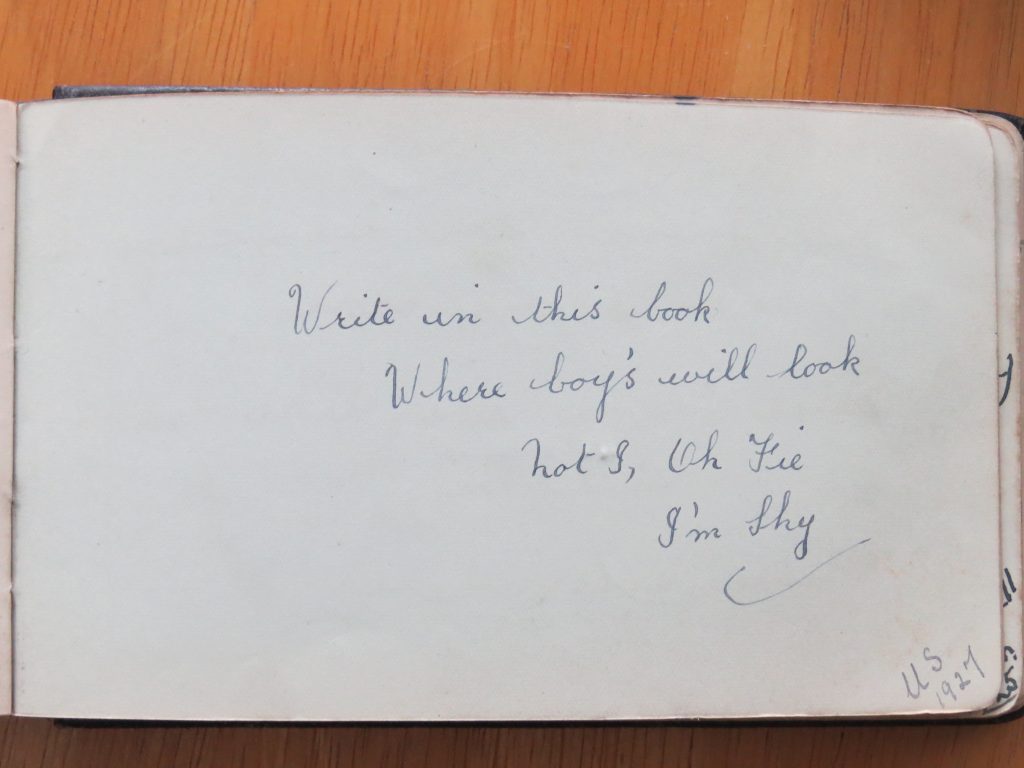 Write in this book
Where boy's will look
Not I, Oh Fie
I'm Shy
U S
1927